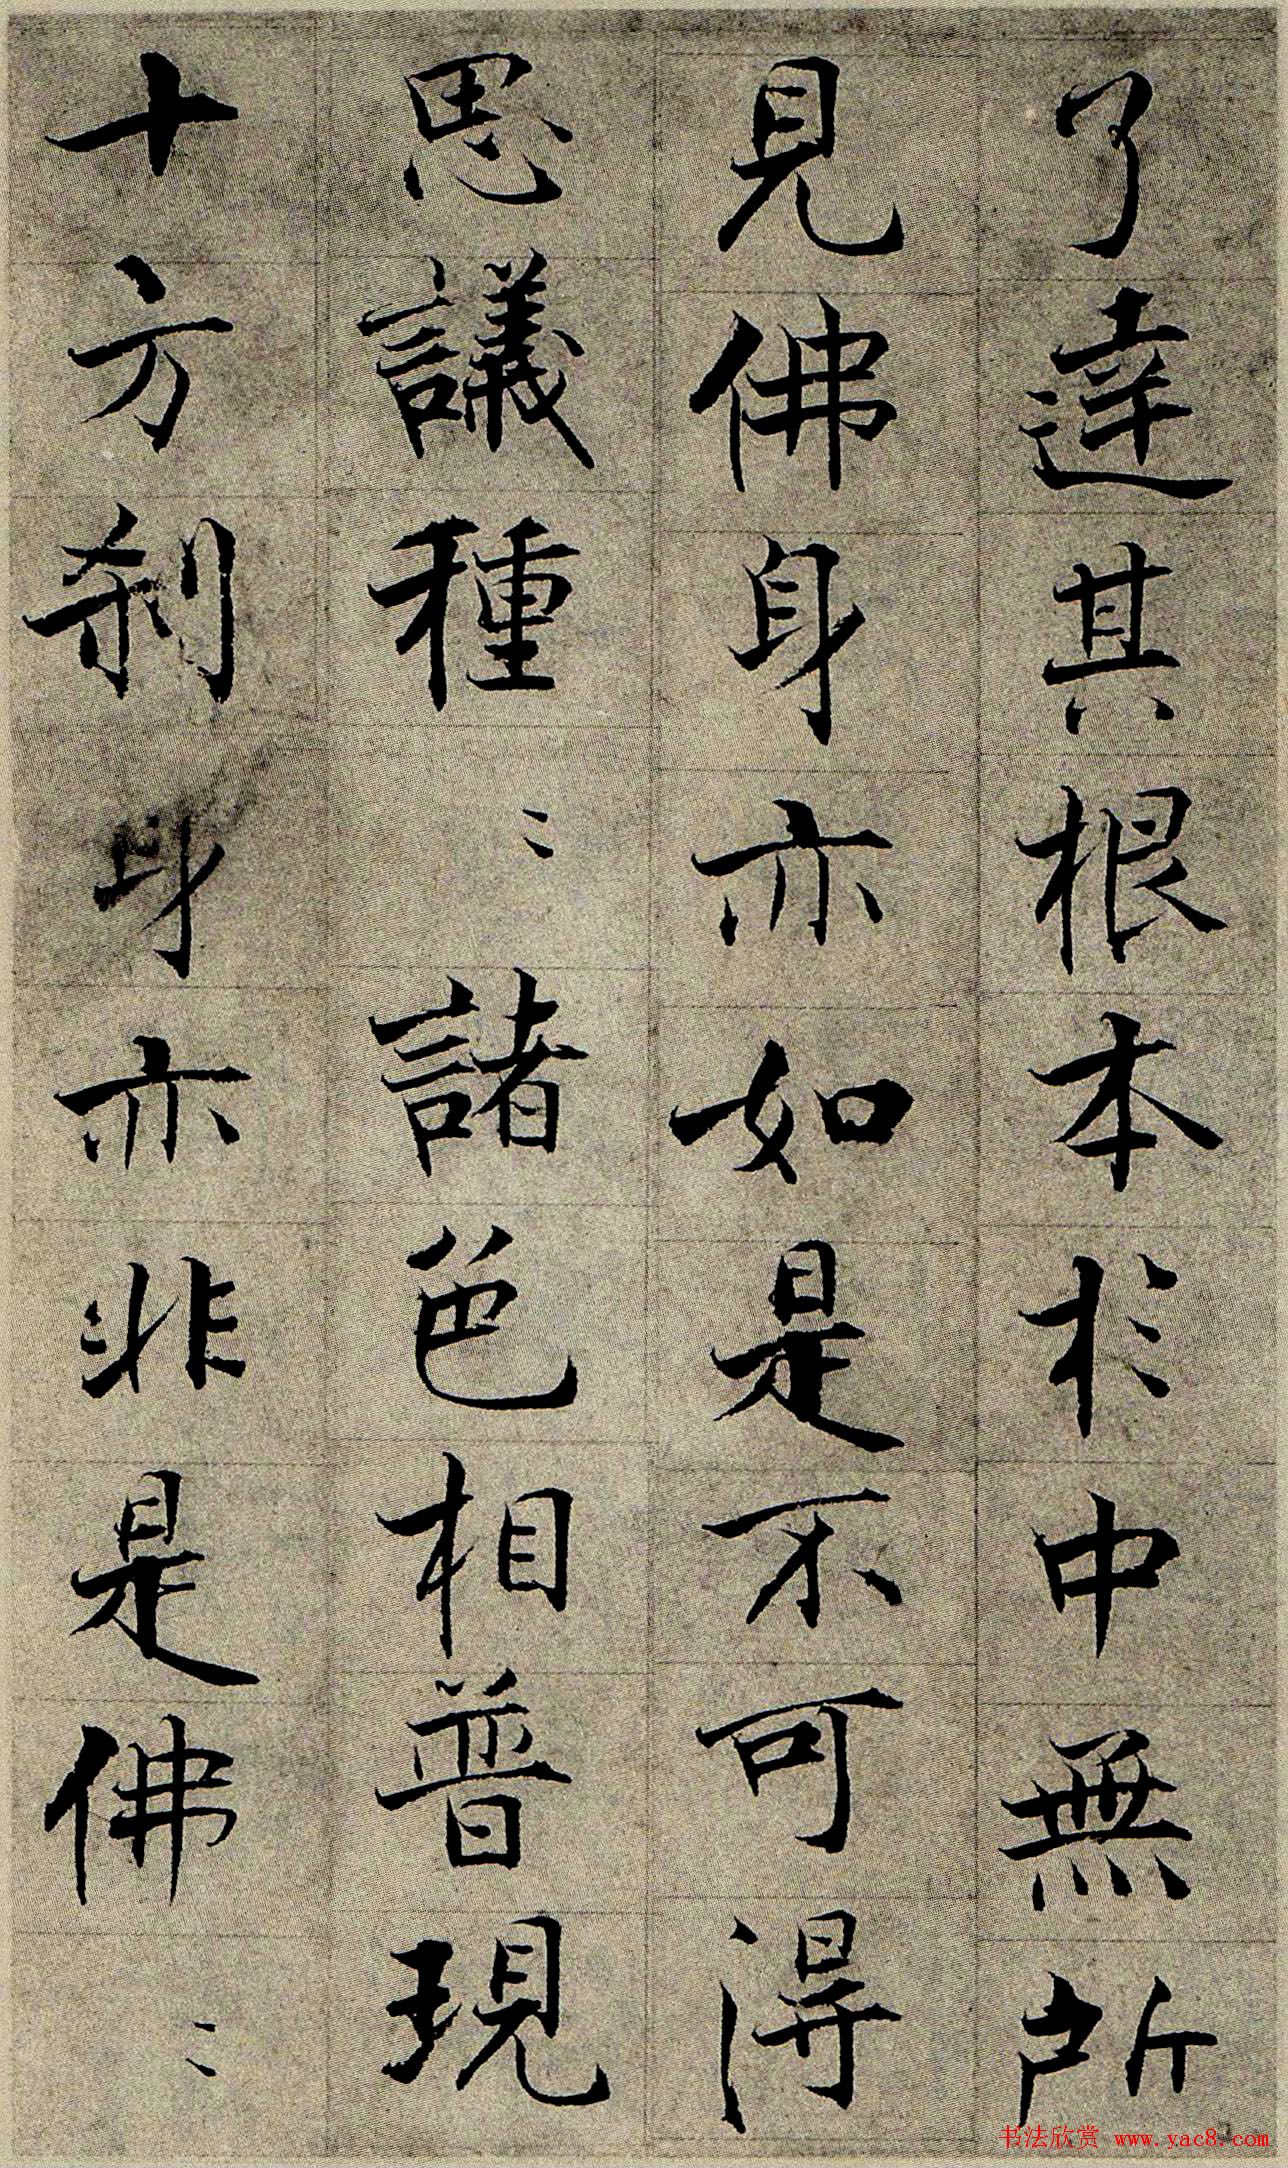 了達其根本於中無所
見佛身亦如是不可得
思議種〻諸色相普現
十方刹身亦非是佛〻
书法欣赏 www.yac8.com